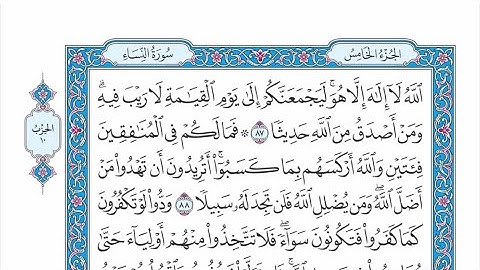 الجزء الخامس
سورة النساء
الحزب
١٠
ٱللَّهُ لَآ إِلَٰهَ إِلَّا هُوَۚ لَيَجۡمَعَنَّكُمۡ إِلَىٰ يَوۡمِ ٱلۡقِيَٰمَةِ لَا رَيۡبَ فِيهِۗ
وَمَنۡ أَصۡدَقُ مِنَ ٱللَّهِ حَدِيثٗا ٨٧ ۞ فَمَا لَكُمۡ فِي ٱلۡمُنَٰفِقِينَ
فِئَتَيۡنِ وَٱللَّهُ أَرۡكَسَهُم بِمَا كَسَبُوٓاْۚ أَتُرِيدُونَ أَن تَهۡدُواْ مَنۡ
أَضَلَّ ٱللَّهُۖ وَمَن يُضۡلِلِ ٱللَّهُ فَلَن تَجِدَ لَهُۥ سَبِيلٗا ٨٨ وَدُّواْ لَوۡ تَكۡفُرُونَ
كَمَا كَفَرُواْ فَتَكُونُونَ سَوَآءٗۖ فَلَا تَتَّخِذُواْ مِنۡهُمۡ أَوۡلِيَآءَ حَتَّىٰ